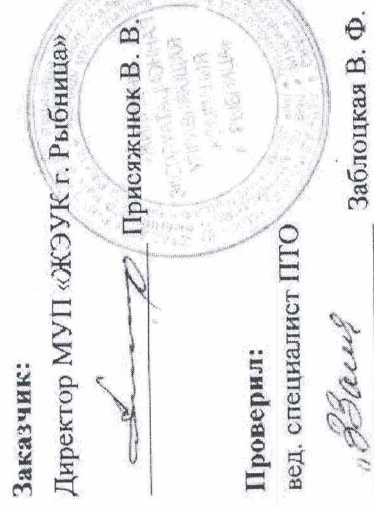 Заказчик:
Директор МУП «ЖЭУК г. Рыбница»
Присяжнюк В. В.
Проверил:
вед. специалист ПТО
Заблоцкая В. Ф.